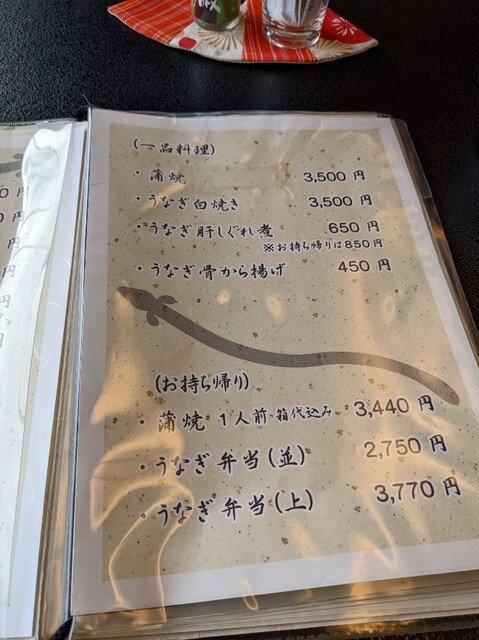 (一品料理)
・蒲焼 3,500 円
・うなぎ白焼き 3,500 円
・うなぎ肝しぐれ煮 650 円
※お持ち帰りは850円
・うなぎ骨から揚げ 450 円
(お持ち帰り)
・蒲焼 1人前・箱代込み 3,440 円
・うなぎ弁当(並) 2,750 円
・うなぎ弁当(上) 3,770 円